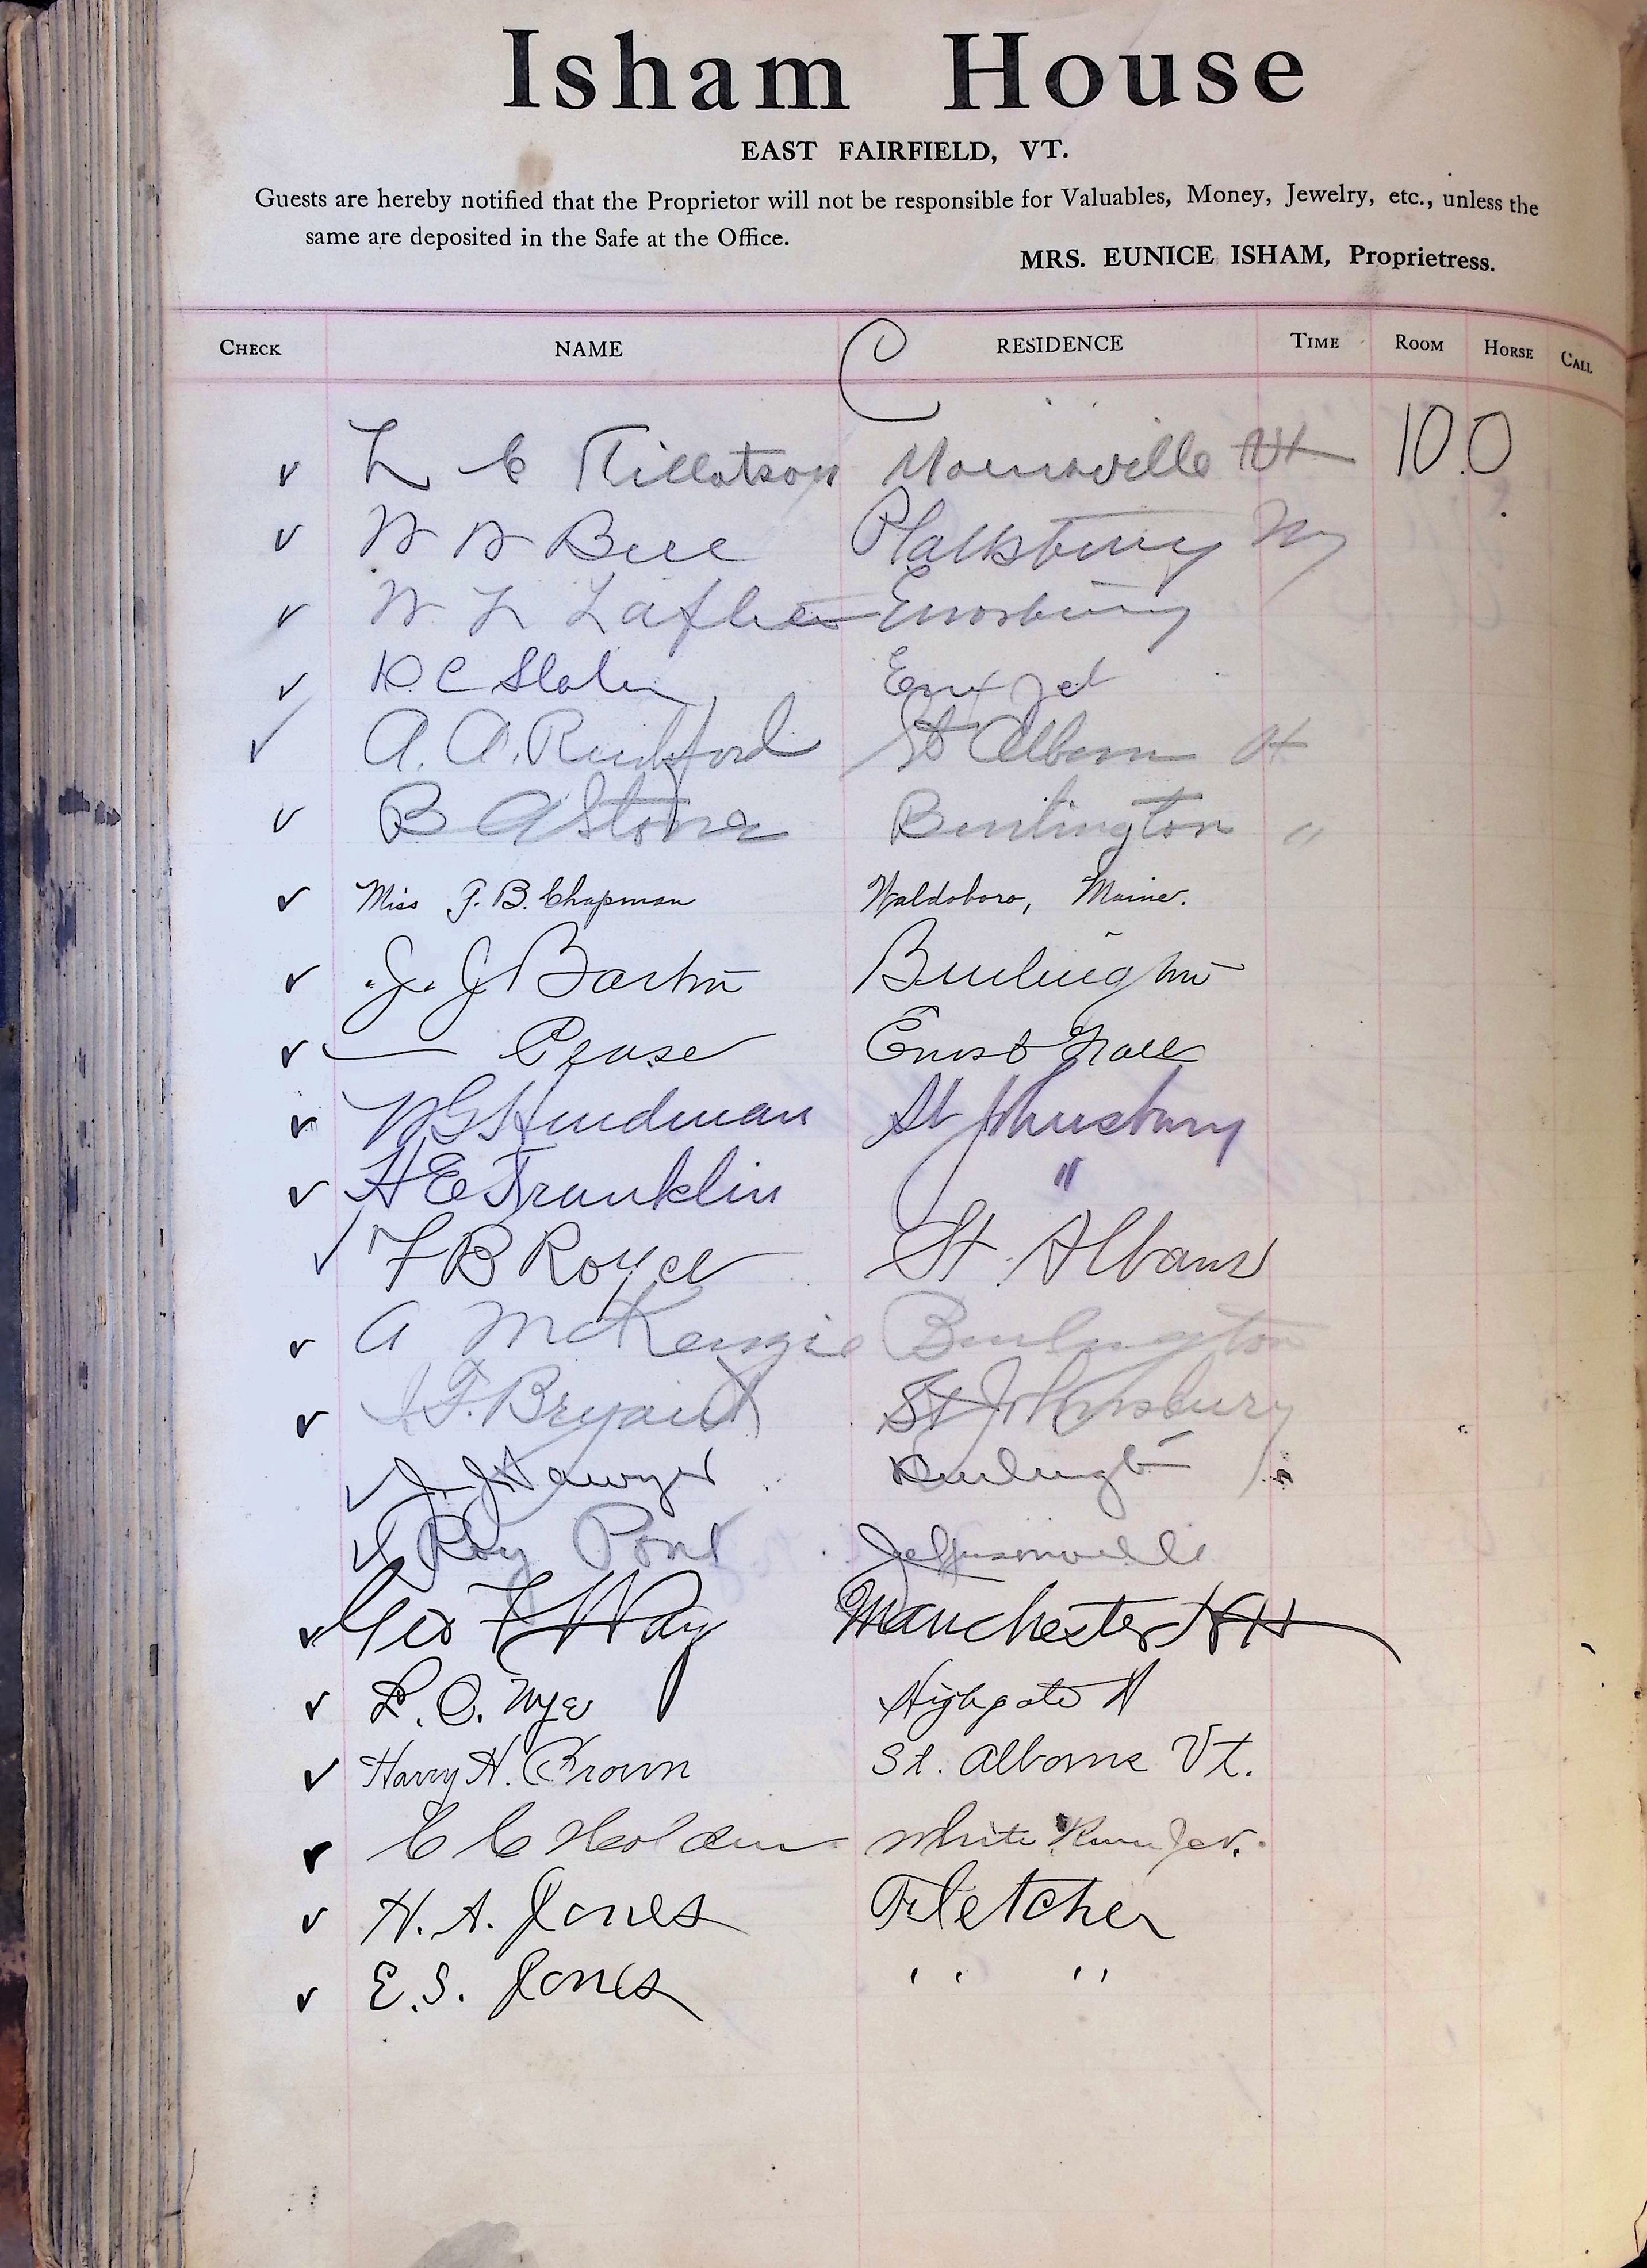 Isham House
EAST FAIRFIELD, VT.
Guests are hereby notified that the Proprietor will not be responsible for Valuables, Money, Jewelry, etc., unless the
same are deposited in the Safe at the Office.
MRS. EUNICE ISHAM, Proprietress.
CHECK NAME RESIDENCE TIME ROOM HORSE CALL
C
✓ L C Tillotson Morrisville Vt 10.0
✓ W W Bell Plattsburg NY
✓ W L Enosburg
✓ C Slater
✓ A. A. St Albans Vt
✓ B A Stone Burlington "
✓ Miss B. Chapman Waldoboro, Maine.
✓ J. J Barton Burlington
✓ — Pease Enosb Falls
✓ W G Hindman St Johnsbury
✓ H E Franklin "
✓ F B Royce St. Albans
✓ A McKenzie Burlington
✓ F. Bryant St Johnsbury
✓ J. Sawyer Burlington
✓ Roy Pont Jeffersonville
✓ Geo F Way Manchester NH
✓ O. Nye Highgate Vt
✓ Harry H. Brown St. Albans Vt.
✓ C C Holden White River Jct.
✓ H. A. Jones Fletcher
✓ E. S. Jones " "